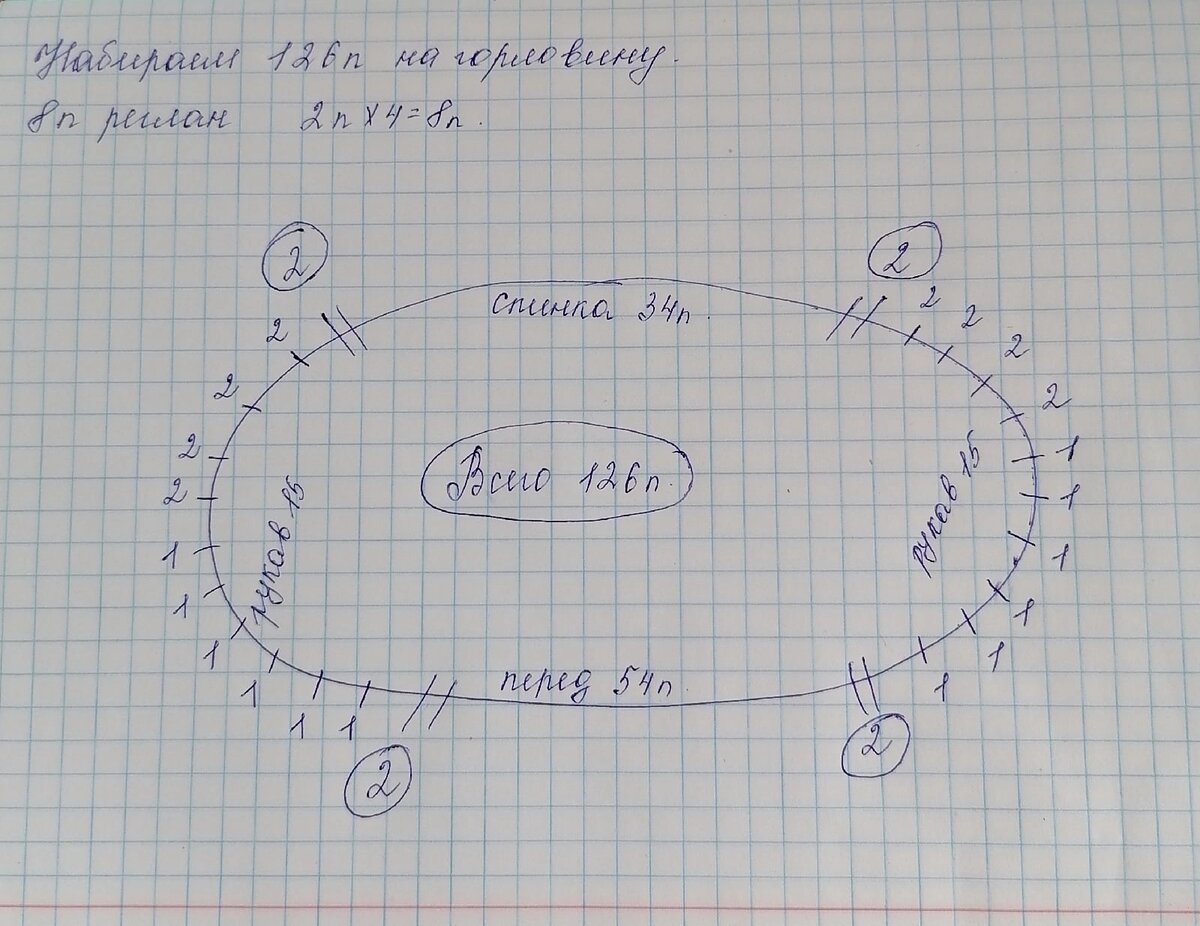 Набираем 126п на горловину.
8п реглан 2п х 4 = 8п.
2 2
спинка 34п.
2 2
2 2
2 2
2 2
Всего 126п.
рукав 15 рукав 15
1 1
1 1
1 1
1 1
1 1
1 1
перед 54п
2 2